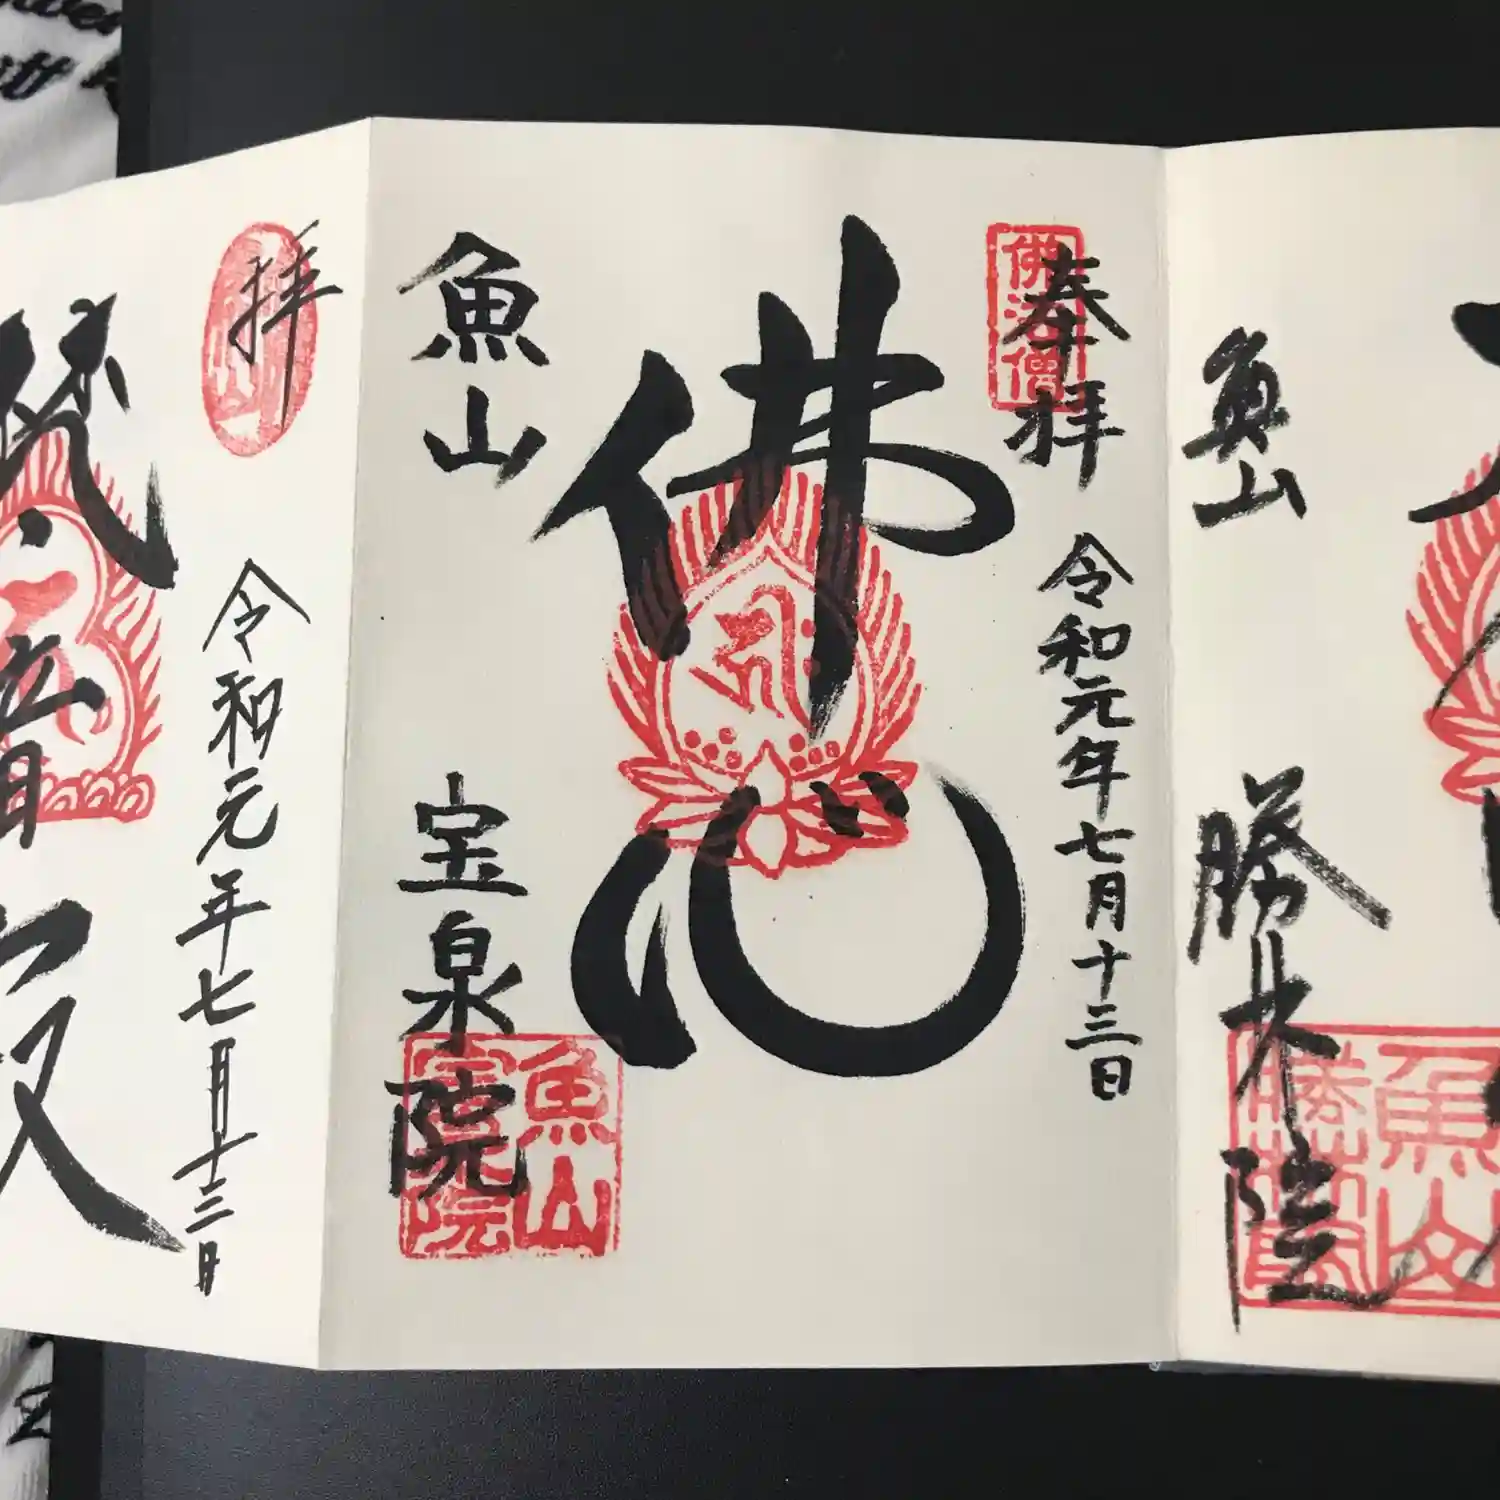 奉拝
令和元年七月十三日
佛心
魚山
宝泉院
佛法僧
魚山
宝泉院
魚山
勝林院
魚山
勝林院
拝
令和元年七月十三日